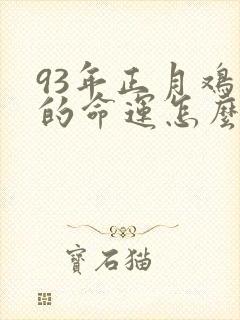 93年正月鸡
的命运怎麼
寶石猫